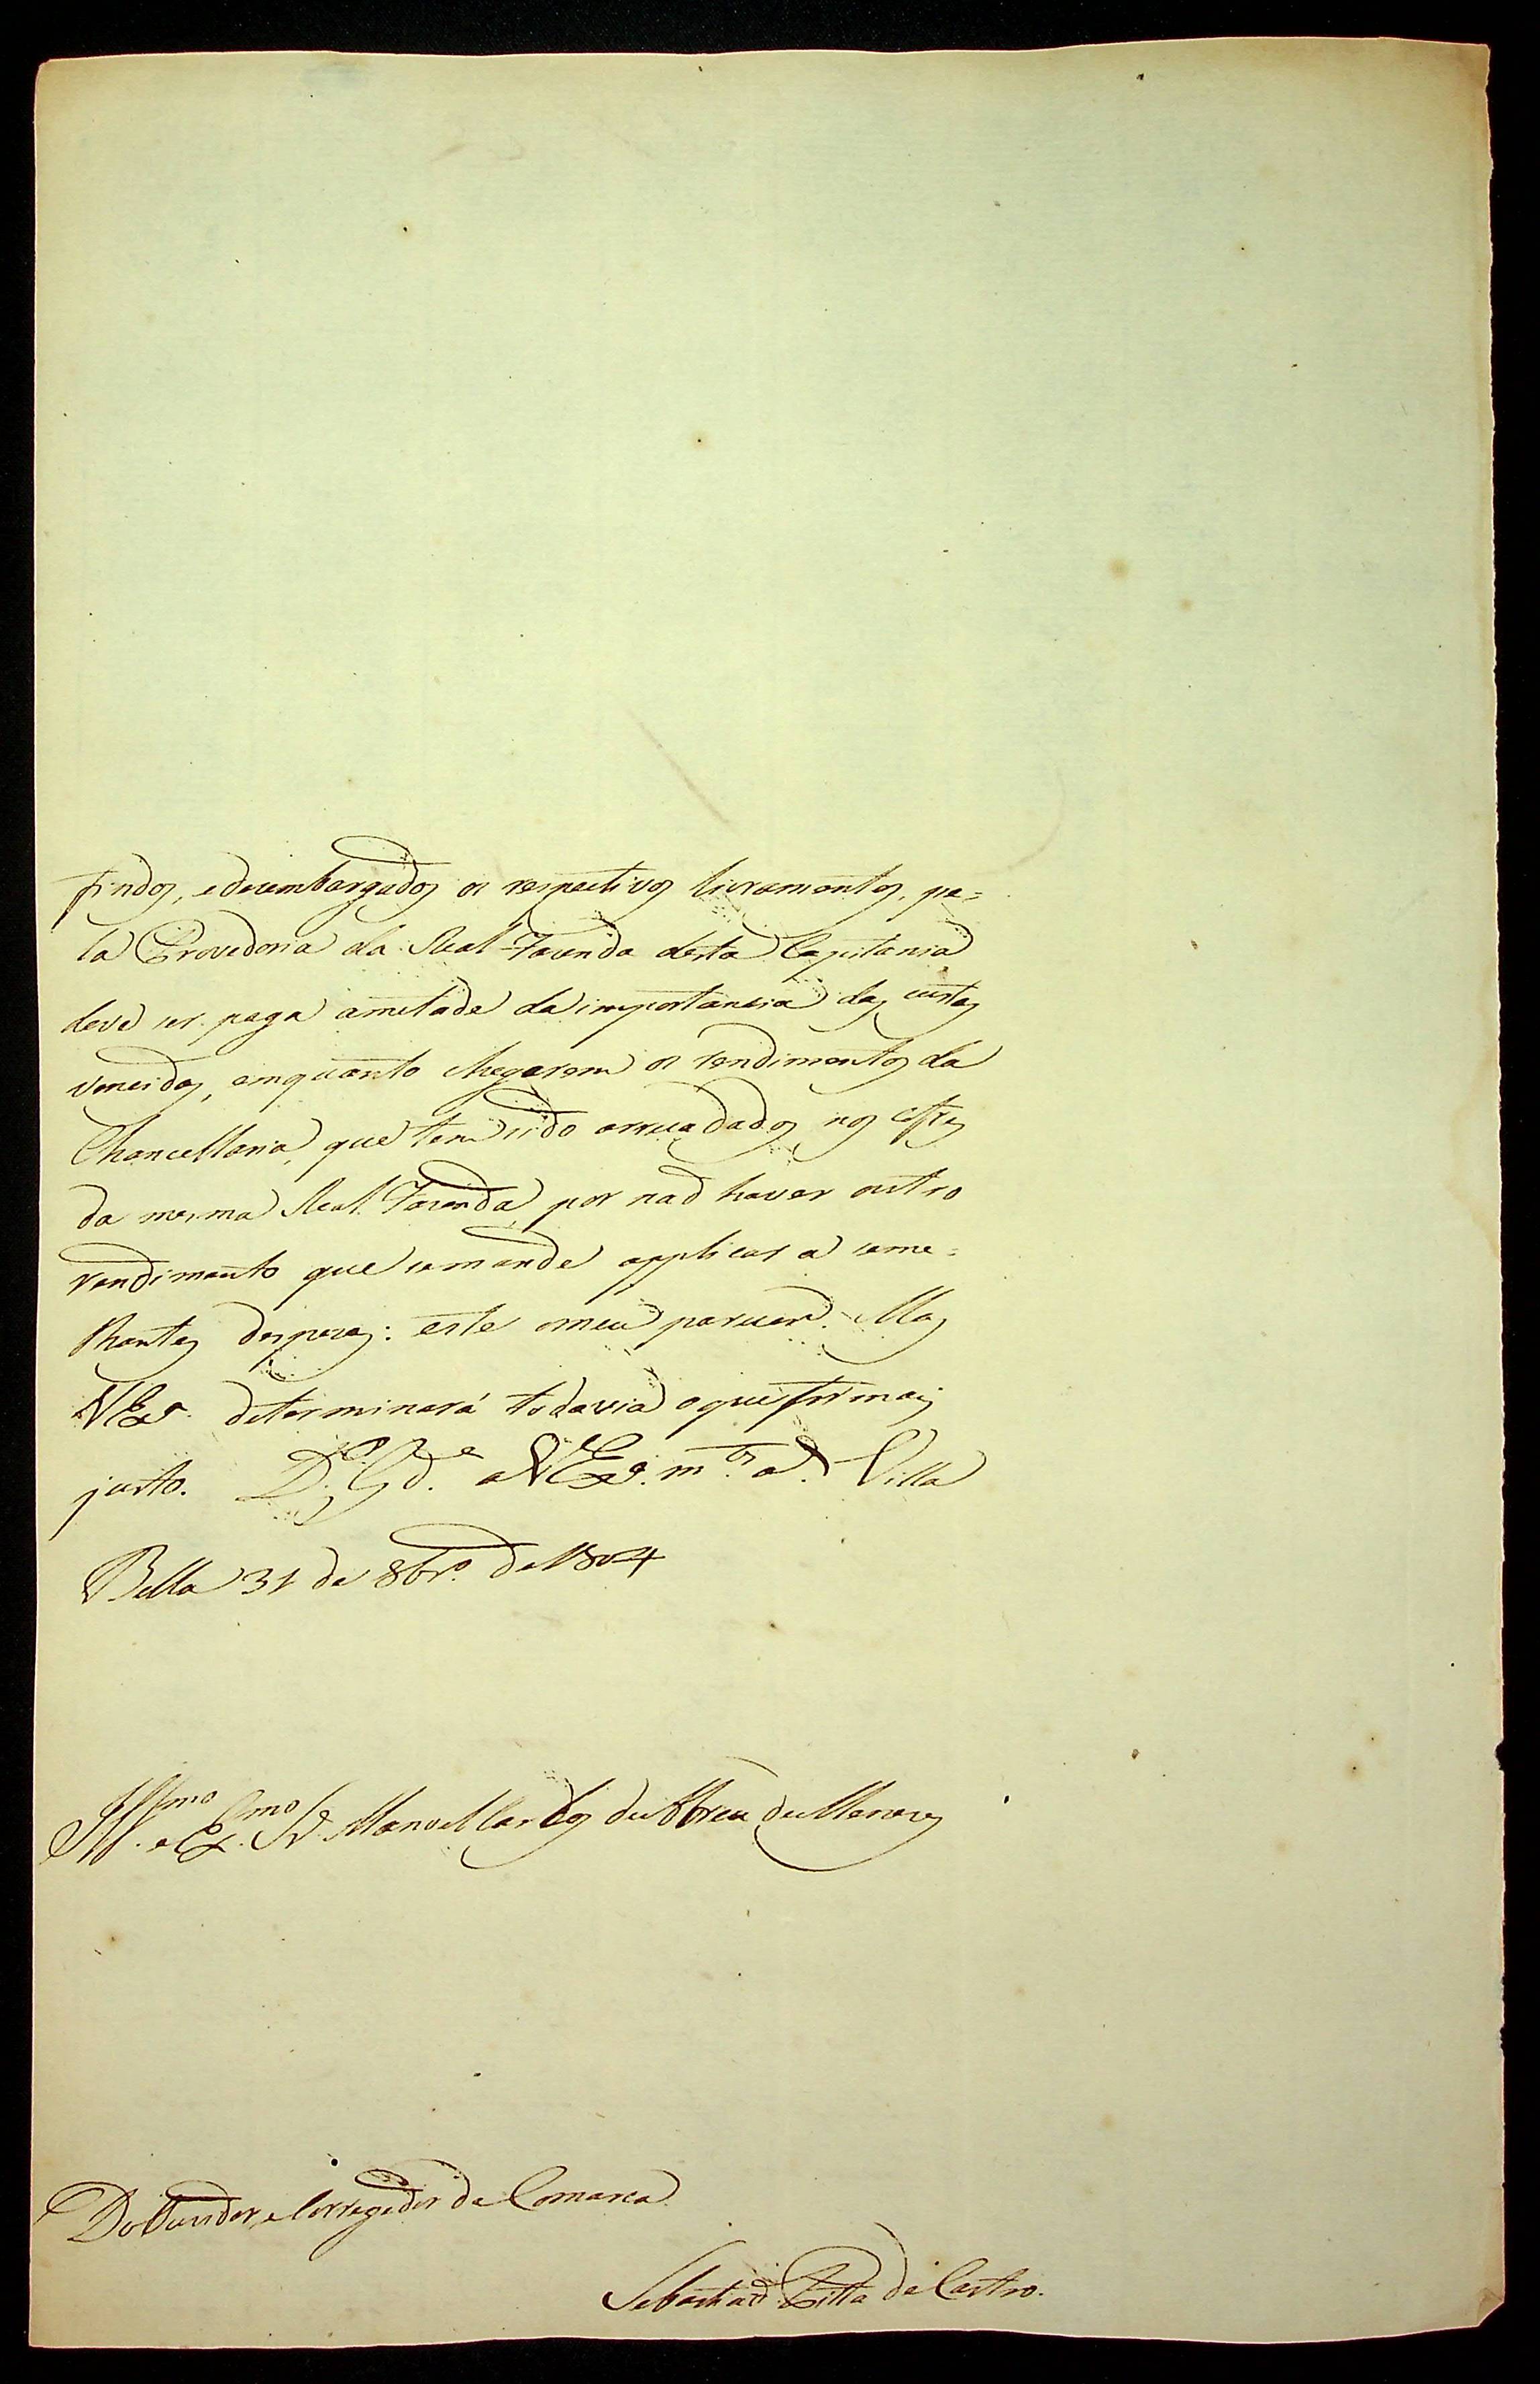 findos, edesembargados os respectivos livramentos, pe=
la Provedoria da Real Fazenda desta Capitania
deve ser paga ametade da importancia das custas
vencidas, emquanto chegarem os rendimentos da
Chancellaria, que tem sido arrecadados nos cofres
da mesma Real Fazenda, por naõ haver outro
rendimento que semande applicar a seme=
lhantes despezas: este omeu parecer. Mas
VEx.ª determinará todavia oque for mais
justo. D.s G.de aVEx.ª m.tos a.s Villa
Bella 31 de 8br.º de 1804
Ill.mo e Ex.mo Sr. Manoel Carlos de Abreu de Menezes
Do Ouvidor, e Corregedor da Comarca
Sebastiaõ Pitta de Castro.